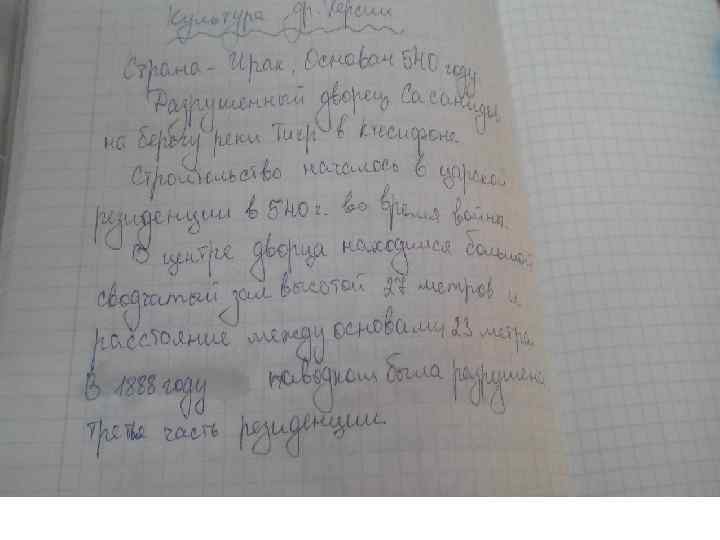 Культура др. Персии
Страна - Ирак. Основан 540 году.
Разрушенный дворец Сасаниды
на берегу реки Тигр в Ктесифоне.
Строительство началось в царской
резиденции в 540 г. во время войны.
В центре дворца находился большой
сводчатый зал высотой 27 метров и
расстояние между основами 23 метра.
В 1888 году наводком была разрушена
третья часть резиденции.